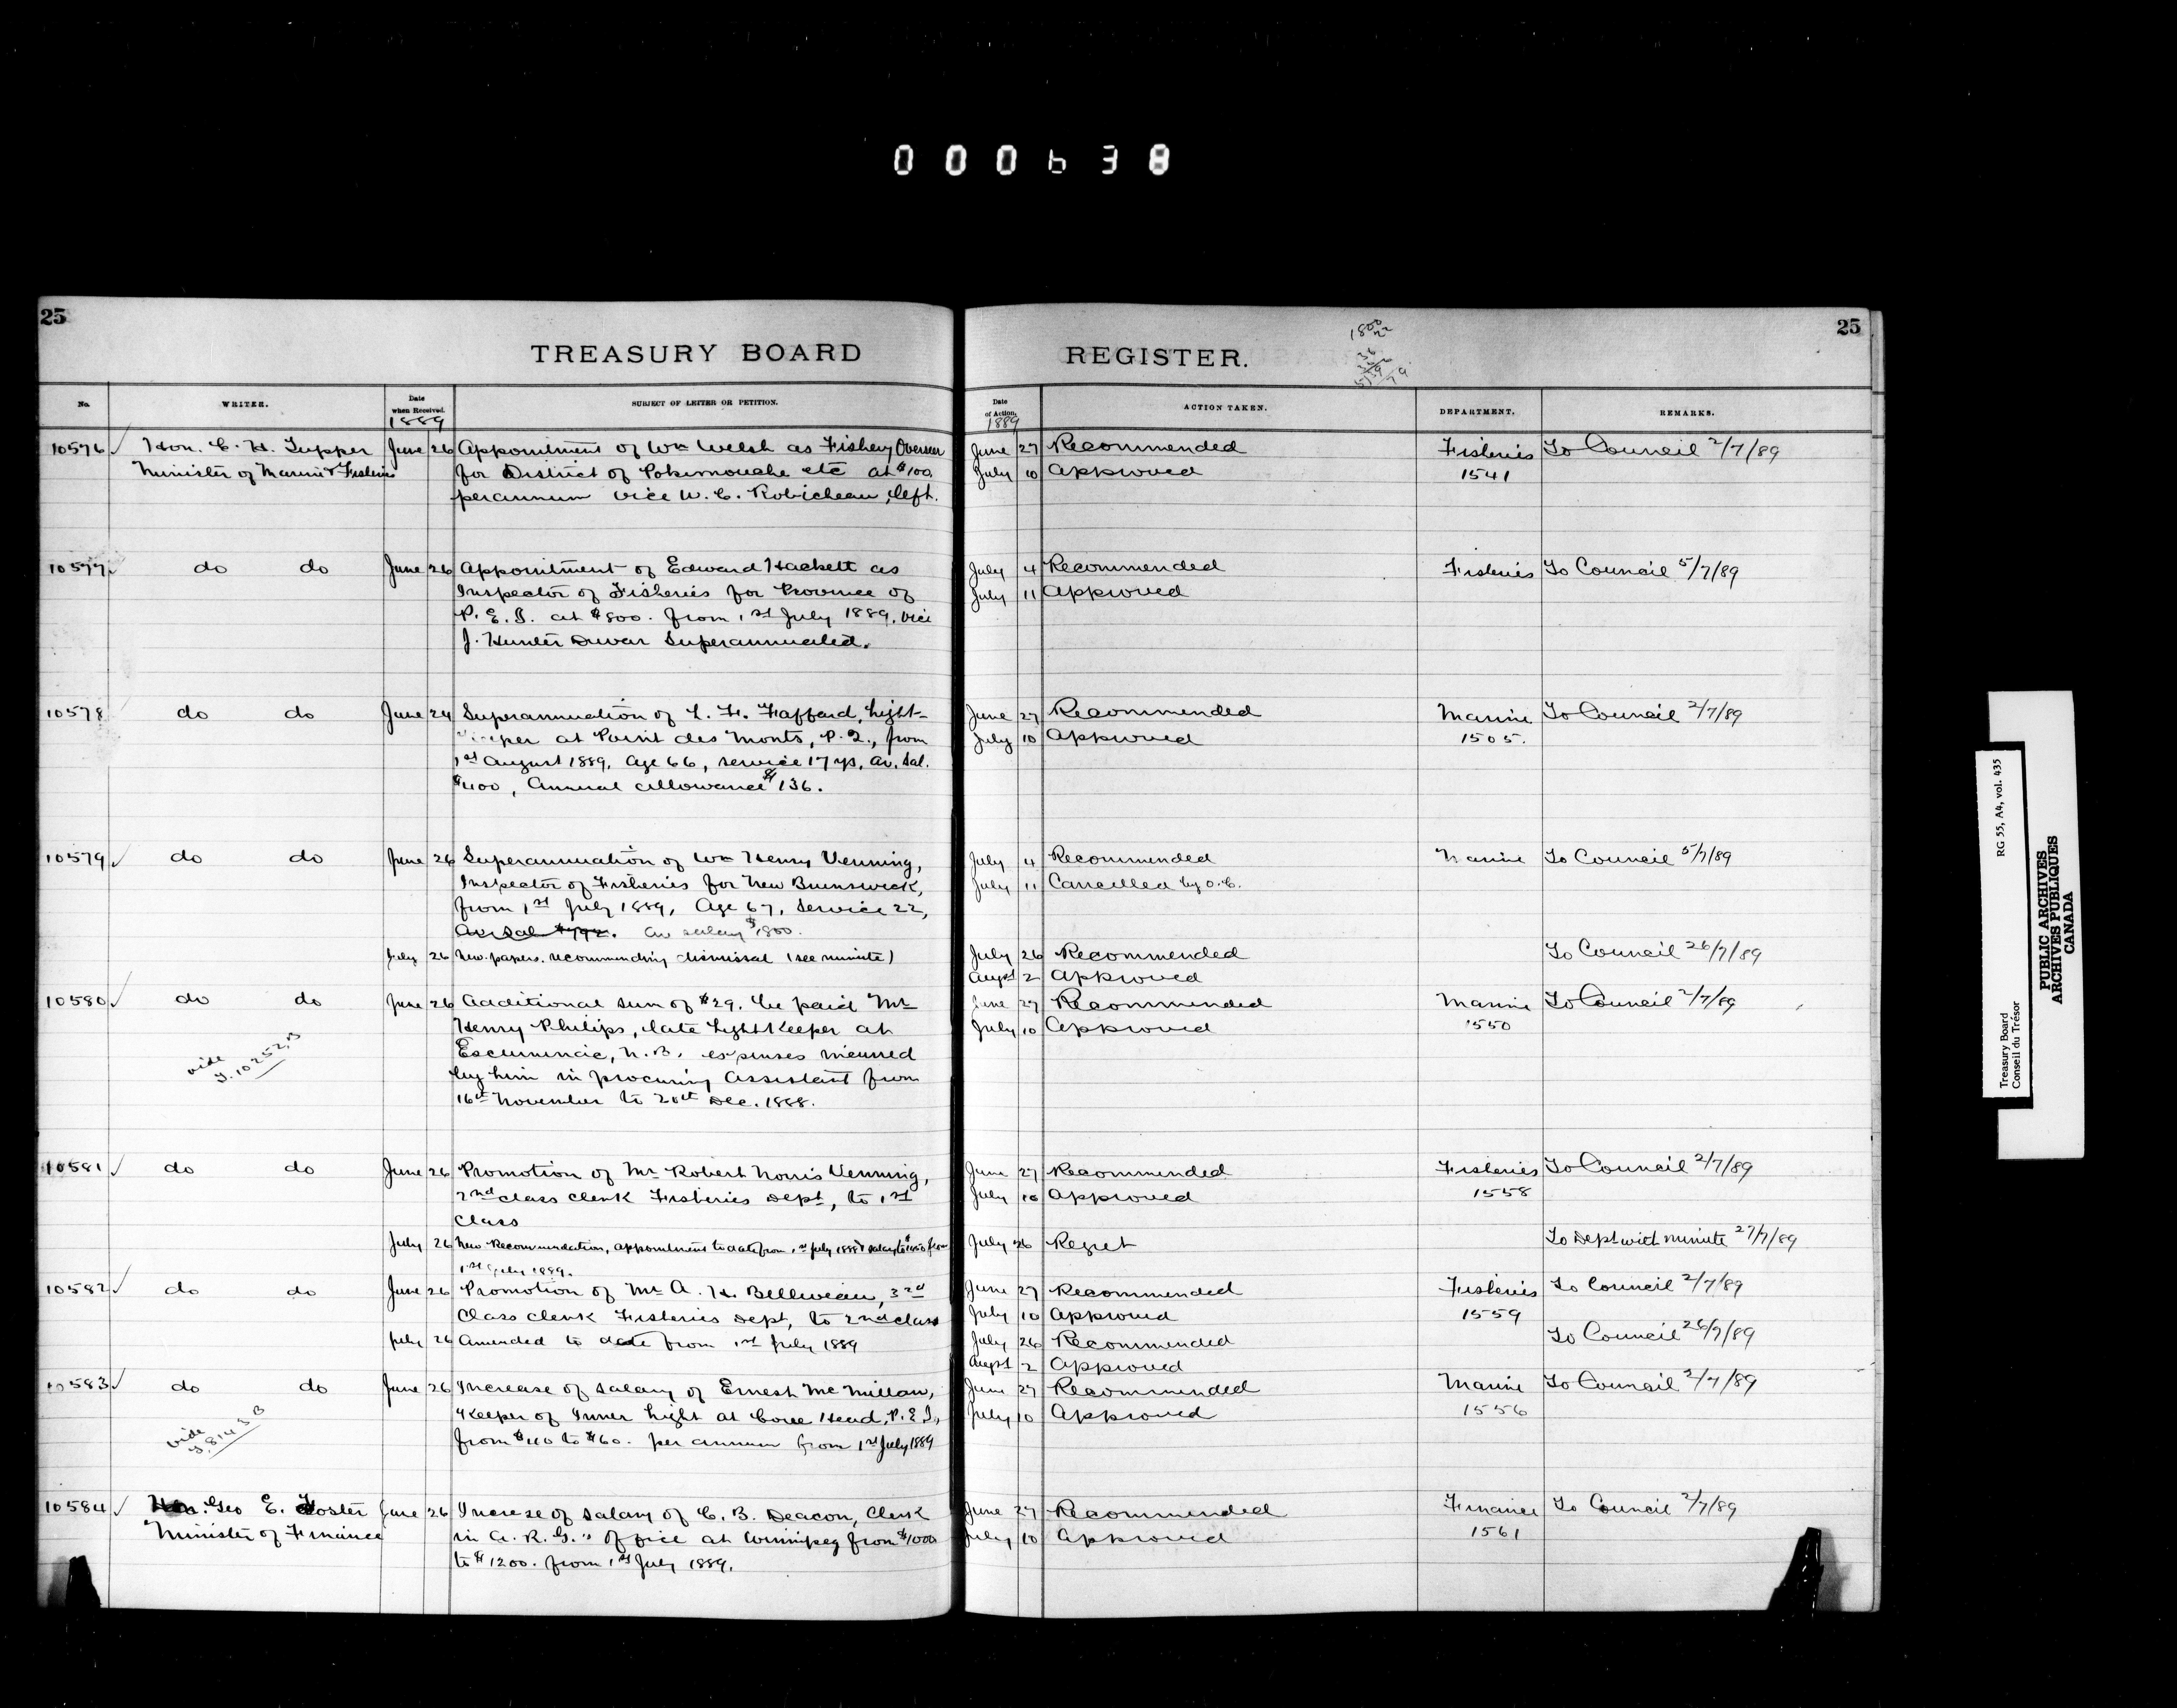 000638
25
TREASURY BOARD
No.
WRITER.
Date when Received.
1889
SUBJECT OF LETTER OR PETITION.
10576 Hon. C. H. Tupper June 26 Appointment of Wm Welsh as Fishery Overseer
Minister of Marine & Fisheries for District of Pokemouche etc at $100
per annum vice W. C. Robicheau, left.
10577 do do June 26 Appointment of Edward Hackett as
Inspector of Fisheries for Province of
P. E. I. at $800. from 1st July 1889, vice
J. Hunter Duvar Superannuated.
10578 do do June 24 Superannuation of L. F. Faffard, Light-
keeper at Point des Monts, P. Q., from
1st August 1889, Age 66, service 17 yrs, av. sal.
$400, Annual allowance $136.
10579 do do June 26 Superannuation of Wm Henry Venning,
Inspector of Fisheries for New Brunswick,
from 1st July 1889, Age 67, Service 22,
Av sal $792. av salary $1800.
July 26 New papers, recommending dismissal (see minute)
10580 do do June 26 Additional sum of $29. be paid Mr
Henry Philips, late Light Keeper at
vide Escuminac, N. B. expenses incurred
Y. 10252 B by him in procuring Assistant from
16th November to 20th Dec. 1888.
10581 do do June 26 Promotion of Mr Robert Norris Venning,
2nd class clerk Fisheries Dept, to 1st
class
July 26 New Recommendation, appointment to date from 1st July 1888 & salary to $1450 from
1st July 1889.
10582 do do June 26 Promotion of Mr A. H. Belliveau, 3rd
Class clerk Fisheries Dept, to 2nd class
July 26 Amended to date from 1st July 1889
10583 do do June 26 Increase of salary of Ernest McMillan,
Keeper of Inner Light at Cove Head, P. E. I.,
vide from $40 to $60. per annum from 1st July 1889
Y. 8145 B
10584 Hon. Geo E. Foster June 26 Increse of salary of C. B. Deacon, Clerk
Minister of Finance in A. R. G.'s office at Winnipeg from $1000
to $1200. from 1st July 1889.
25
REGISTER.
Date of Action.
1889
ACTION TAKEN.
DEPARTMENT.
REMARKS.
June 27 Recommended Fisheries To Council 2/7/89
July 10 Approved 1541
July 4 Recommended Fisheries To Council 5/7/89
July 11 Approved
June 27 Recommended Marine To Council 2/7/89
July 10 Approved 1505.
July 4 Recommended Marine To Council 5/7/89
July 11 Cancelled by O.C.
July 26 Recommended To Council 26/7/89
Augst 2 Approved
June 27 Recommended Marine To Council 2/7/89
July 10 Approved 1550
June 27 Recommended Fisheries To Council 2/7/89
July 10 Approved 1558
July 26 Regret To Dept with minute 27/7/89
June 27 Recommended Fisheries To Council 2/7/89
July 10 Approved 1559
July 26 Recommended To Council 26/7/89
Augst 2 Approved
June 27 Recommended Marine To Council 2/7/89
July 10 Approved 1556
June 27 Recommended Finance To Council 2/7/89
July 10 Approved 1561
Treasury Board RG 55, A4, vol. 435
Conseil du Trésor
PUBLIC ARCHIVES
ARCHIVES PUBLIQUES
CANADA